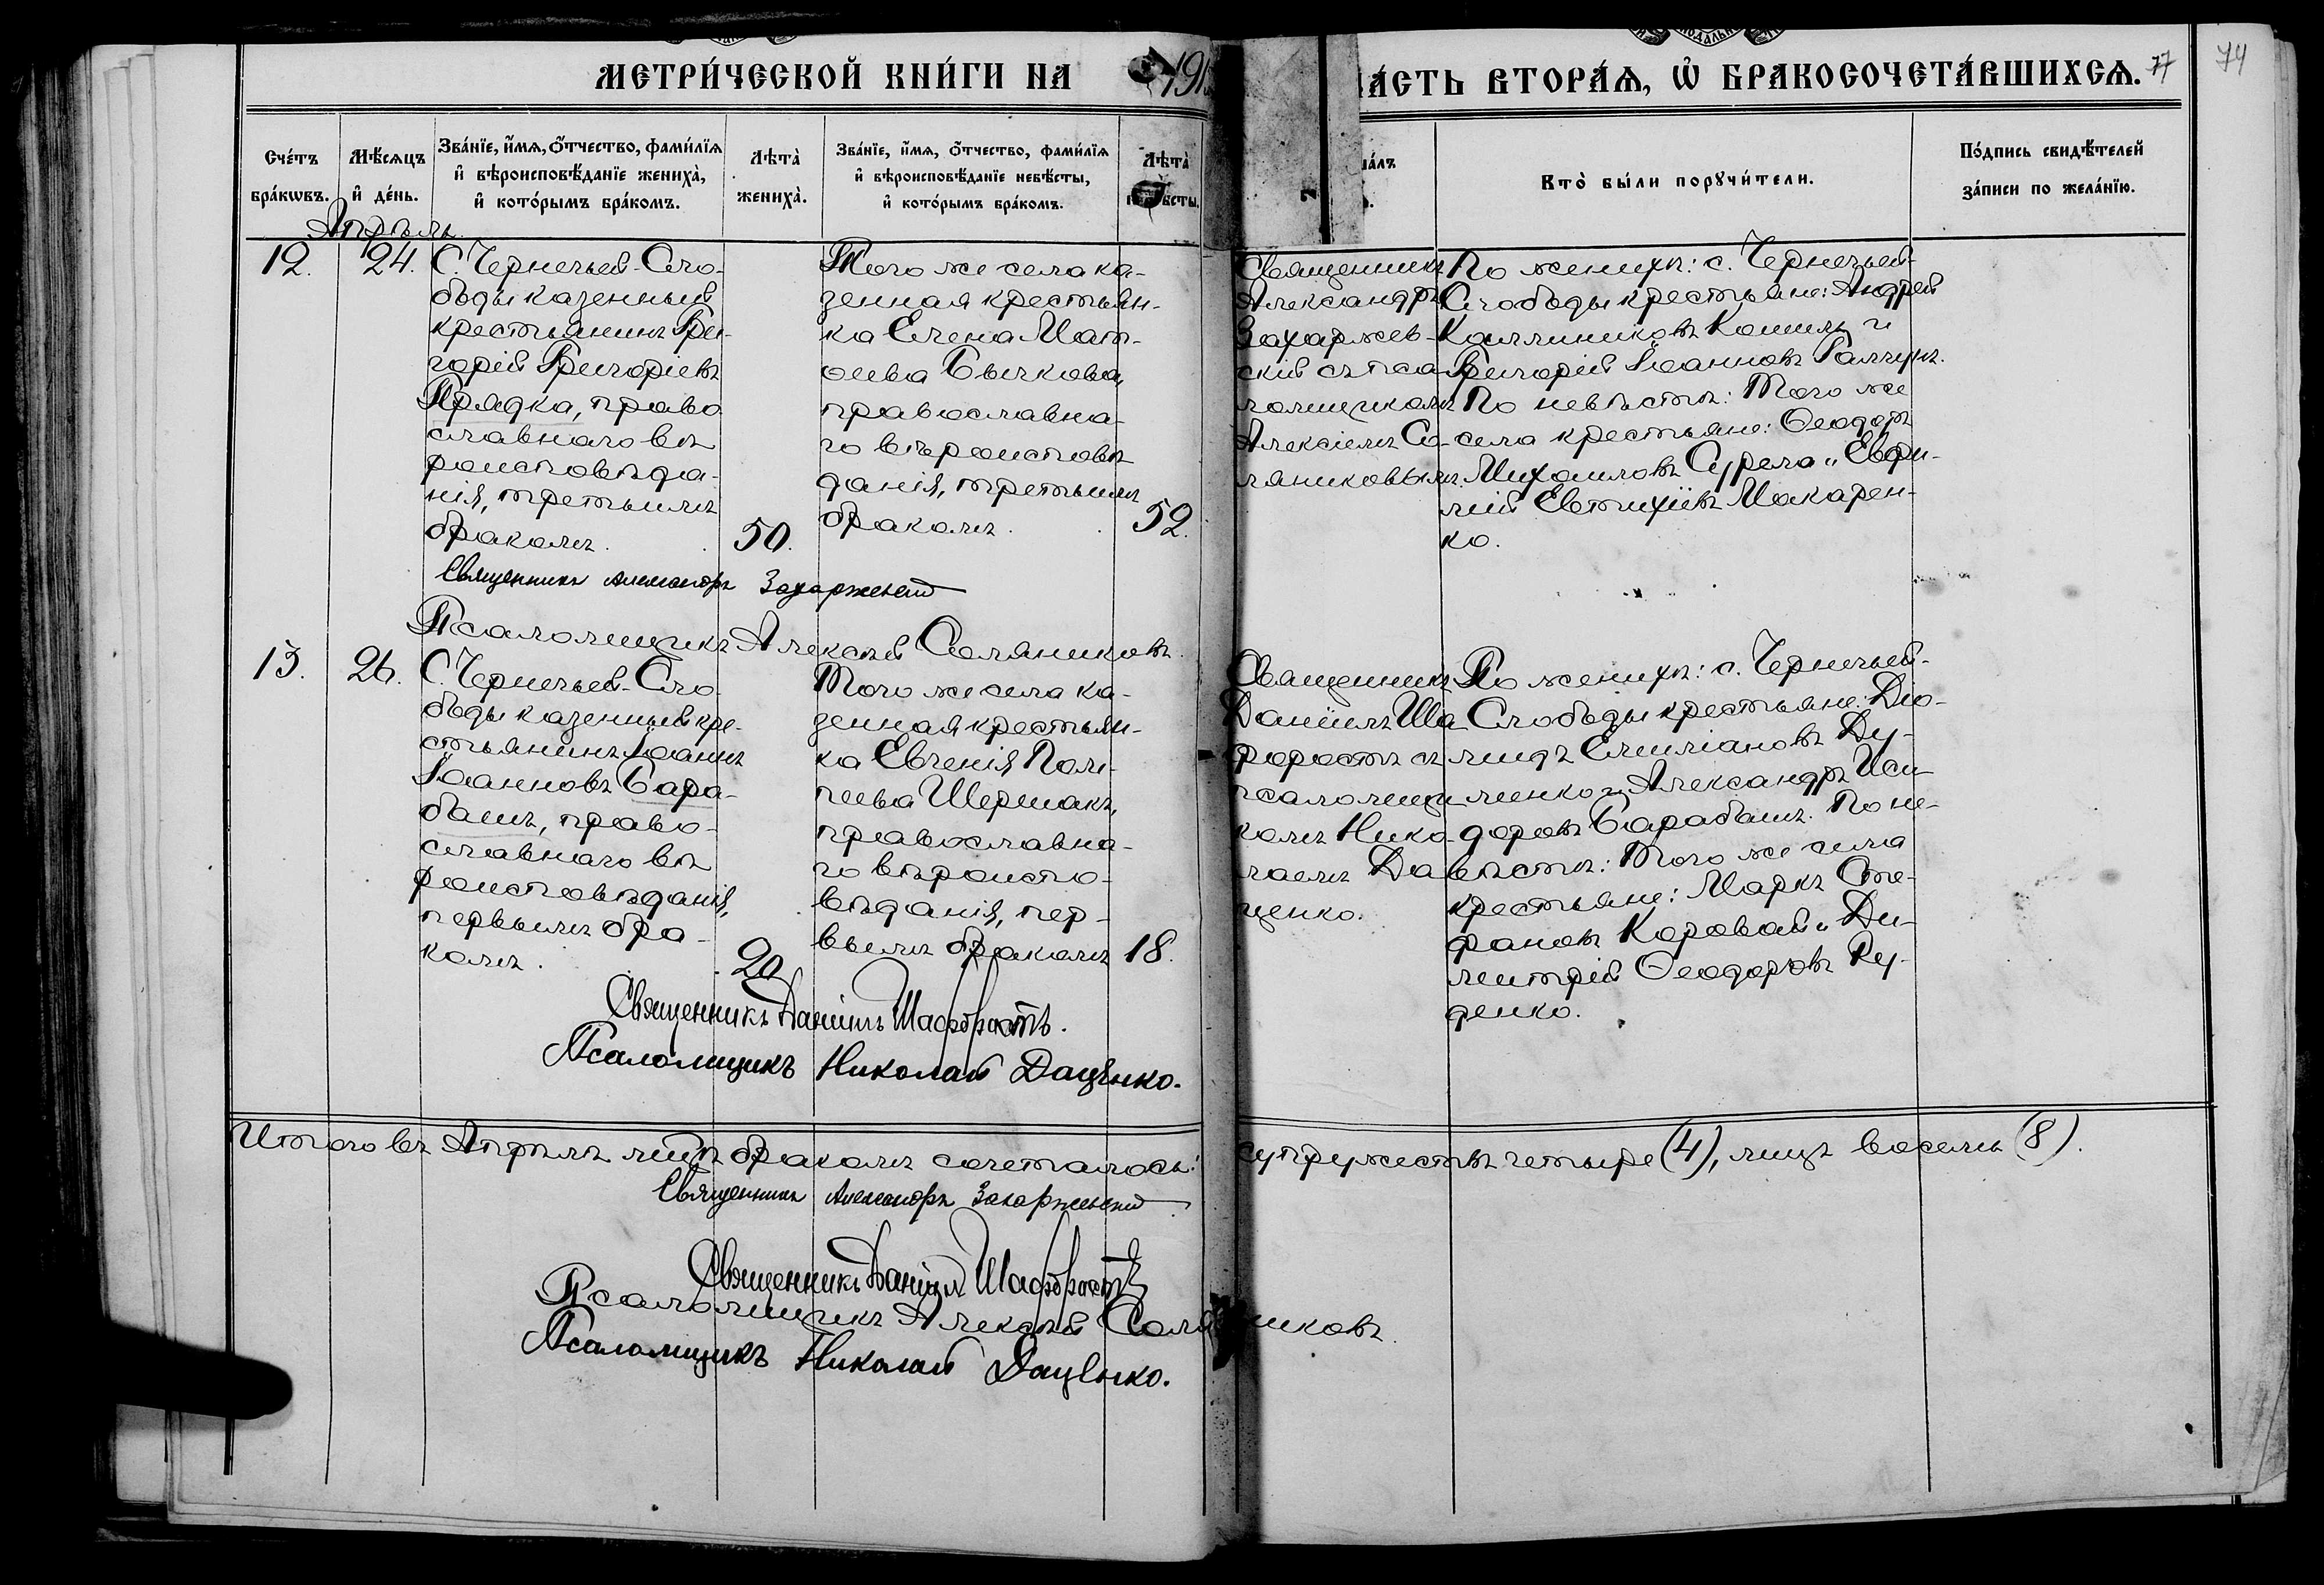 МЕТРИ́ЧЕСКОЙ КНИ́ГИ НА 191
ЧА́СТЬ ВТОРА́Ѧ, Ѽ БРАКОСОЧЕТА́ВШИХСѦ.
77
74
Сче́тъ бра́кωвъ.
Мѣ́сяцъ и҆ де́нь.
Зва́нїе, и҆́мѧ, ѻ҆́тчество, фами́лїѧ и҆ вѣроисповѣ́данїе жениха̀, и҆ кото́рымъ бра́комъ.
Лѣта̀ жениха̀.
Зва́нїе, и҆́мѧ, ѻ҆́тчество, фами́лїѧ и҆ вѣроисповѣ́данїе невѣ́сты, и҆ кото́рымъ бра́комъ.
Лѣта̀ невѣ́сты.
Кто̀ бы́ли порꙋчи́тели.
По́дпись свидѣ́телей за́писи по жела́нїю.
Апрѣль.
12.
24.
С. Чернечьей-Сло-
боды казенный
крестьянинъ Гри-
горій Григоріевъ
Прядка, право
славнаго вѣ
роисповѣда-
нія, третьимъ
бракомъ.
50.
Того же села ка-
зенная крестьян-
ка Елена Мат-
ѳеева Бычкова,
православна-
го вѣроисповѣ
данія, третьимъ
бракомъ.
52.
Священникъ
Александръ
Захаржев-
скій съ пса
ломщикомъ
Алексіемъ Со-
ляниковымъ.
По женихѣ: с. Чернечьей-
Слободы крестьяне: Андрей
Каллиниковъ Кошиль и
Григорій Іоанновъ Галчунъ.
По невѣстѣ: Того же
села крестьяне: Ѳеодоръ
Михаиловъ Сурела и Евфи-
мій Евтихіевъ Макарен-
ко.
Священникъ Александръ Захаржевскій
Псаломщикъ Алексѣй Соляниковъ.
13.
26.
С. Чернечьей-Сло-
боды казенный кре-
стьянинъ Іоаннъ
Іоанновъ Бара-
башъ, право-
славнаго вѣ
роисповѣданія,
первымъ бра-
комъ.
20
Того же села ка-
зенная крестьян-
ка Евгенія Пом-
пеева Шермакъ,
православна-
го вѣроиспо-
вѣданія, пер-
вымъ бракомъ
18.
Священникъ
Даніилъ Ша
форостъ съ
псаломщи
комъ Нико-
лаемъ Да
ценко.
По женихѣ: с. Чернечьей-
Слободы крестьяне: Діо-
мидъ Емиліановъ Ду-
менко и Александръ Иси-
доровъ Барабашъ. По не-
вѣстѣ: Того же села
крестьяне: Маркъ Сте-
фановъ Коровай и Ди-
митрій Ѳеодоровъ Ру-
денко.
Священникъ Даніилъ Шафоростъ.
Псаломщикъ Николай Даценко.
Итого въ Апрѣлѣ мцѣ бракомъ сочеталось: супружествъ четыре (4), лицъ восемь (8).
Священникъ Александръ Захаржевскій
Священникъ Даніилъ Шафоростъ
Псаломщикъ Алексѣй Соляниковъ.
Псаломщикъ Николай Даценко.